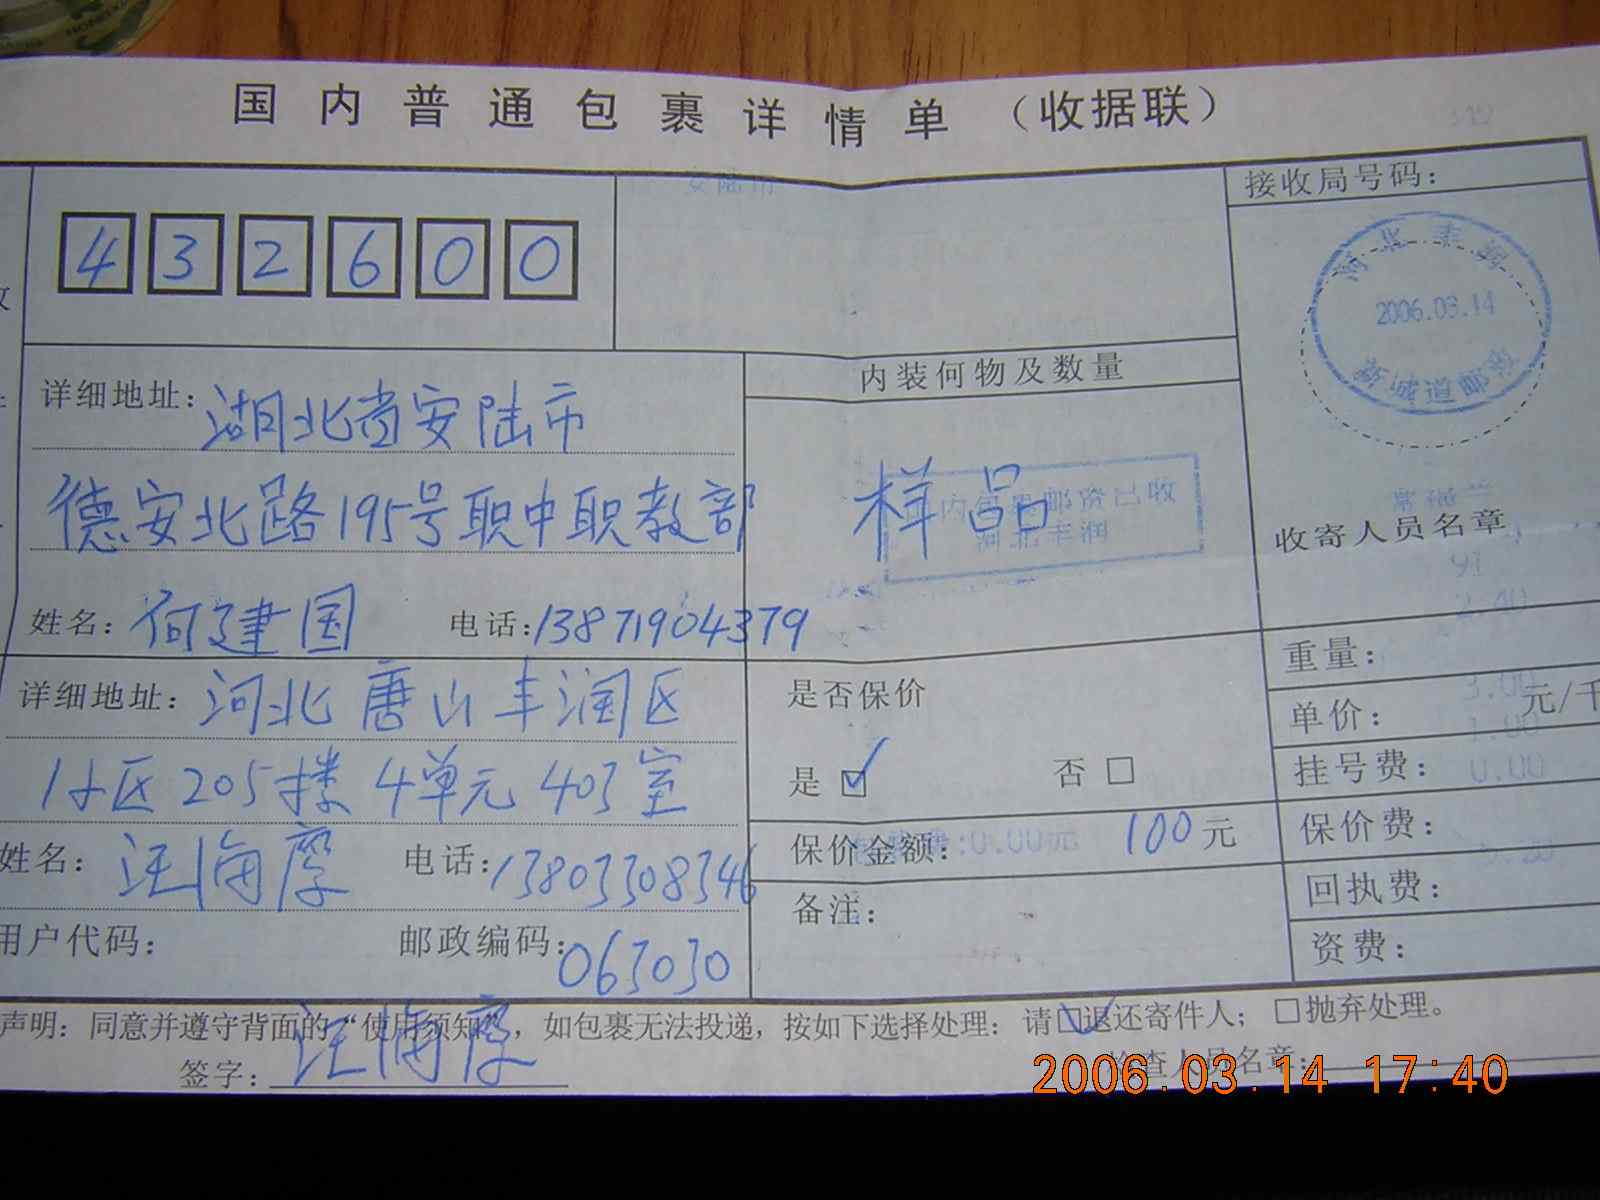 国内普通包裹详情单（收据联）
接收局号码：
安陆市
432600
河北丰润
2006.03.14
新城道邮政
详细地址：湖北省安陆市
内装何物及数量
德安北路195号职中职教部
样品
内包裹邮资已收
河北丰润
收寄人员名章
姓名：何建国 电话：13871904379
重量：
详细地址：河北唐山丰润区
是否保价
3.00
单价： 元/千
1.00
205楼4单元403室
是 ☑ 否 □
挂号费： 0.00
姓名：汪海 电话：13803308346
保价金额： 100元
:0.00元
保价费：
备注：
回执费：
用户代码： 邮政编码：063030
资费：
声明：同意并遵守背面的“使用须知”，如包裹无法投递，按如下选择处理：请☑退还寄件人；□抛弃处理。
签字：汪海
检查人员名章：
2006.03.14 17:40